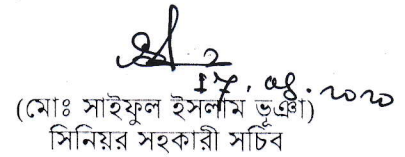 17.08.2020
(মোঃ সাইফুল ইসলাম ভূঞা)
সিনিয়র সহকারী সচিব